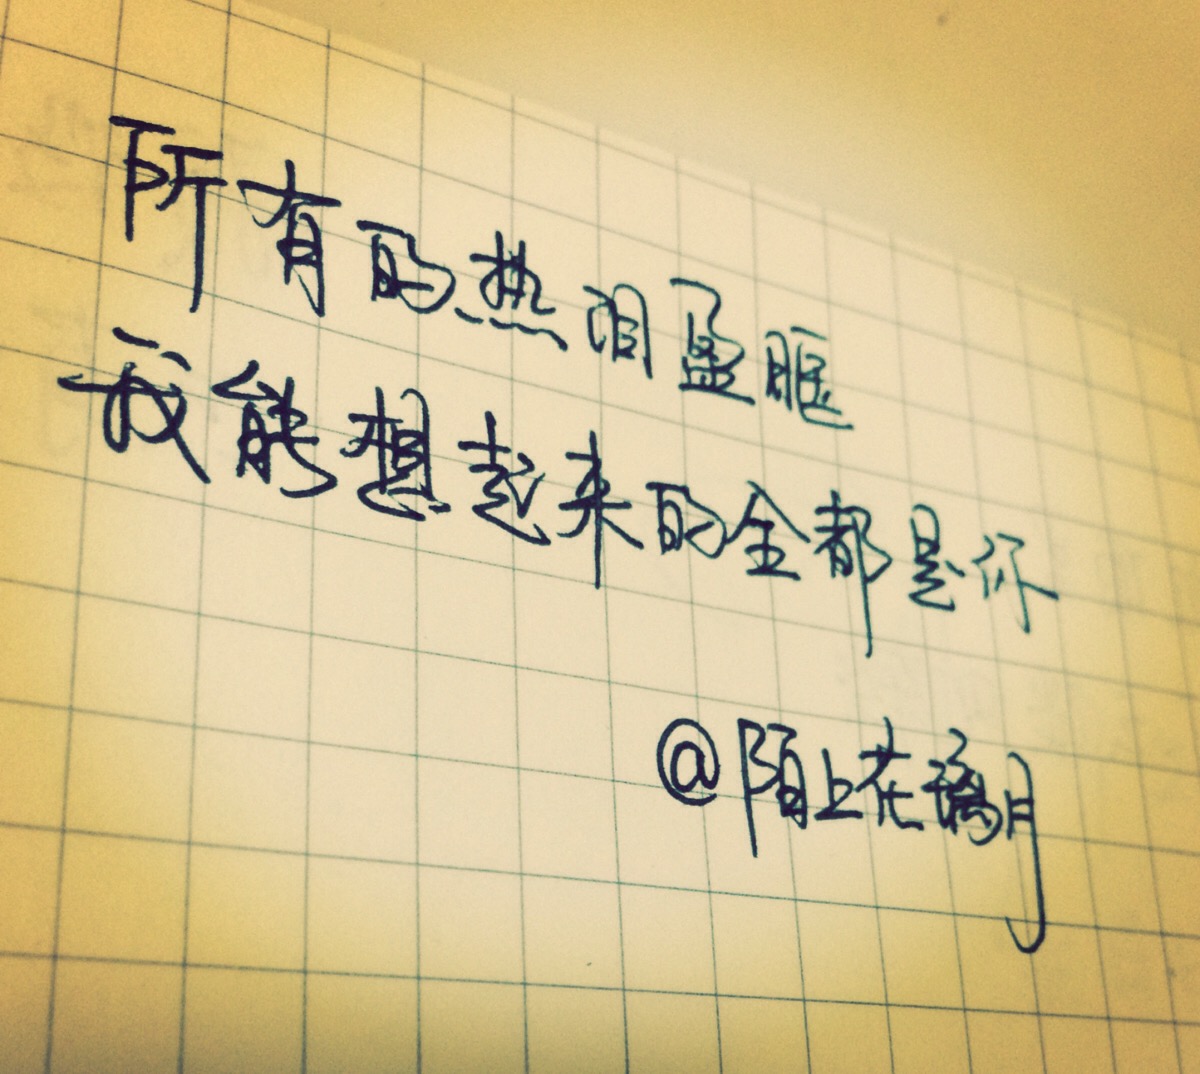 所有的热泪盈眶
我能想起来的全都是你
@陌上花璃月